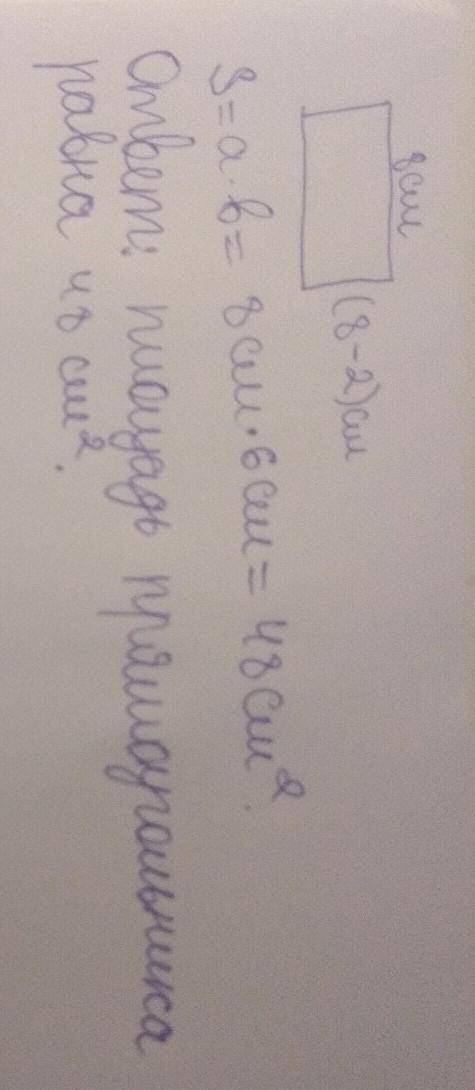 8 см
(8-2)см
S = a · b = 8 см · 6 см = 48 см².
Ответ: площадь прямоугольника
равна 48 см².